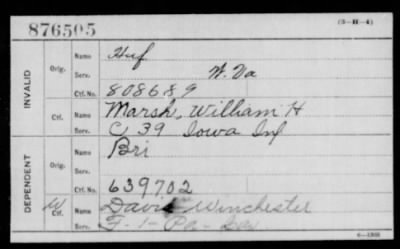 876505
(3-H-4)
INVALID
Orig.
Name Huf
Serv. W. Va
Ctf. No. 808689
Ctf.
Name Marsh, William H
Serv. C 39 Iowa Inf
DEPENDENT
Orig.
Name Bri
Serv.
Ctf. No. 639702
W Ctf.
Name David Winchester
Serv. F-1-Pa-